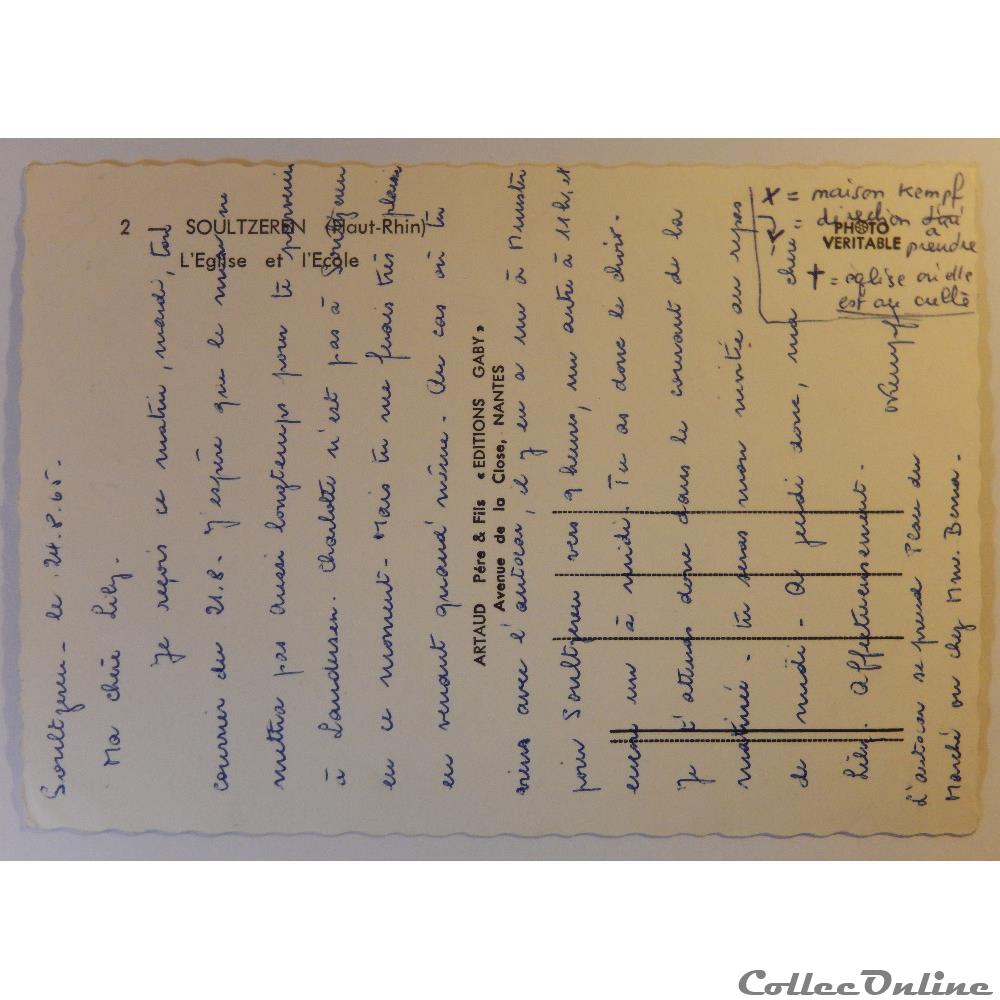 2 SOULTZEREN (Haut-Rhin)
L'Eglise et l'Ecole
PHOTO
VERITABLE
ARTAUD Père & Fils « EDITIONS GABY »
Avenue de la Close, NANTES
x = maison Kempf
= direction
à
prendre
† = église où elle
est au culte
Soultzeren - le 24.8.65.
Ma chère Lily.
Je reçois ce matin, mardi, ton
courrier du 21.8 - J'espère que le mien ne
mettra pas aussi longtemps pour te parvenir
à Landersen. Charlotte n'est pas à Soultzeren
en ce moment - Mais tu me ferais très plaisir
en venant quand même - Au cas où tu
viens avec l'autocar, il y en a un à Munster
pour Soultzeren vers 9 heures, un autre à 11h, et
encore un à midi. Tu as donc le choix.
Je t'attends donc dans le courant de la
matinée - tu seras mon invitée au repas
de midi - A jeudi donc, ma chère
Lily. Affectueusement.
Kempf
L'autocar se prend Place du
Marché ou chez Mme. Berna.
CollecOnline